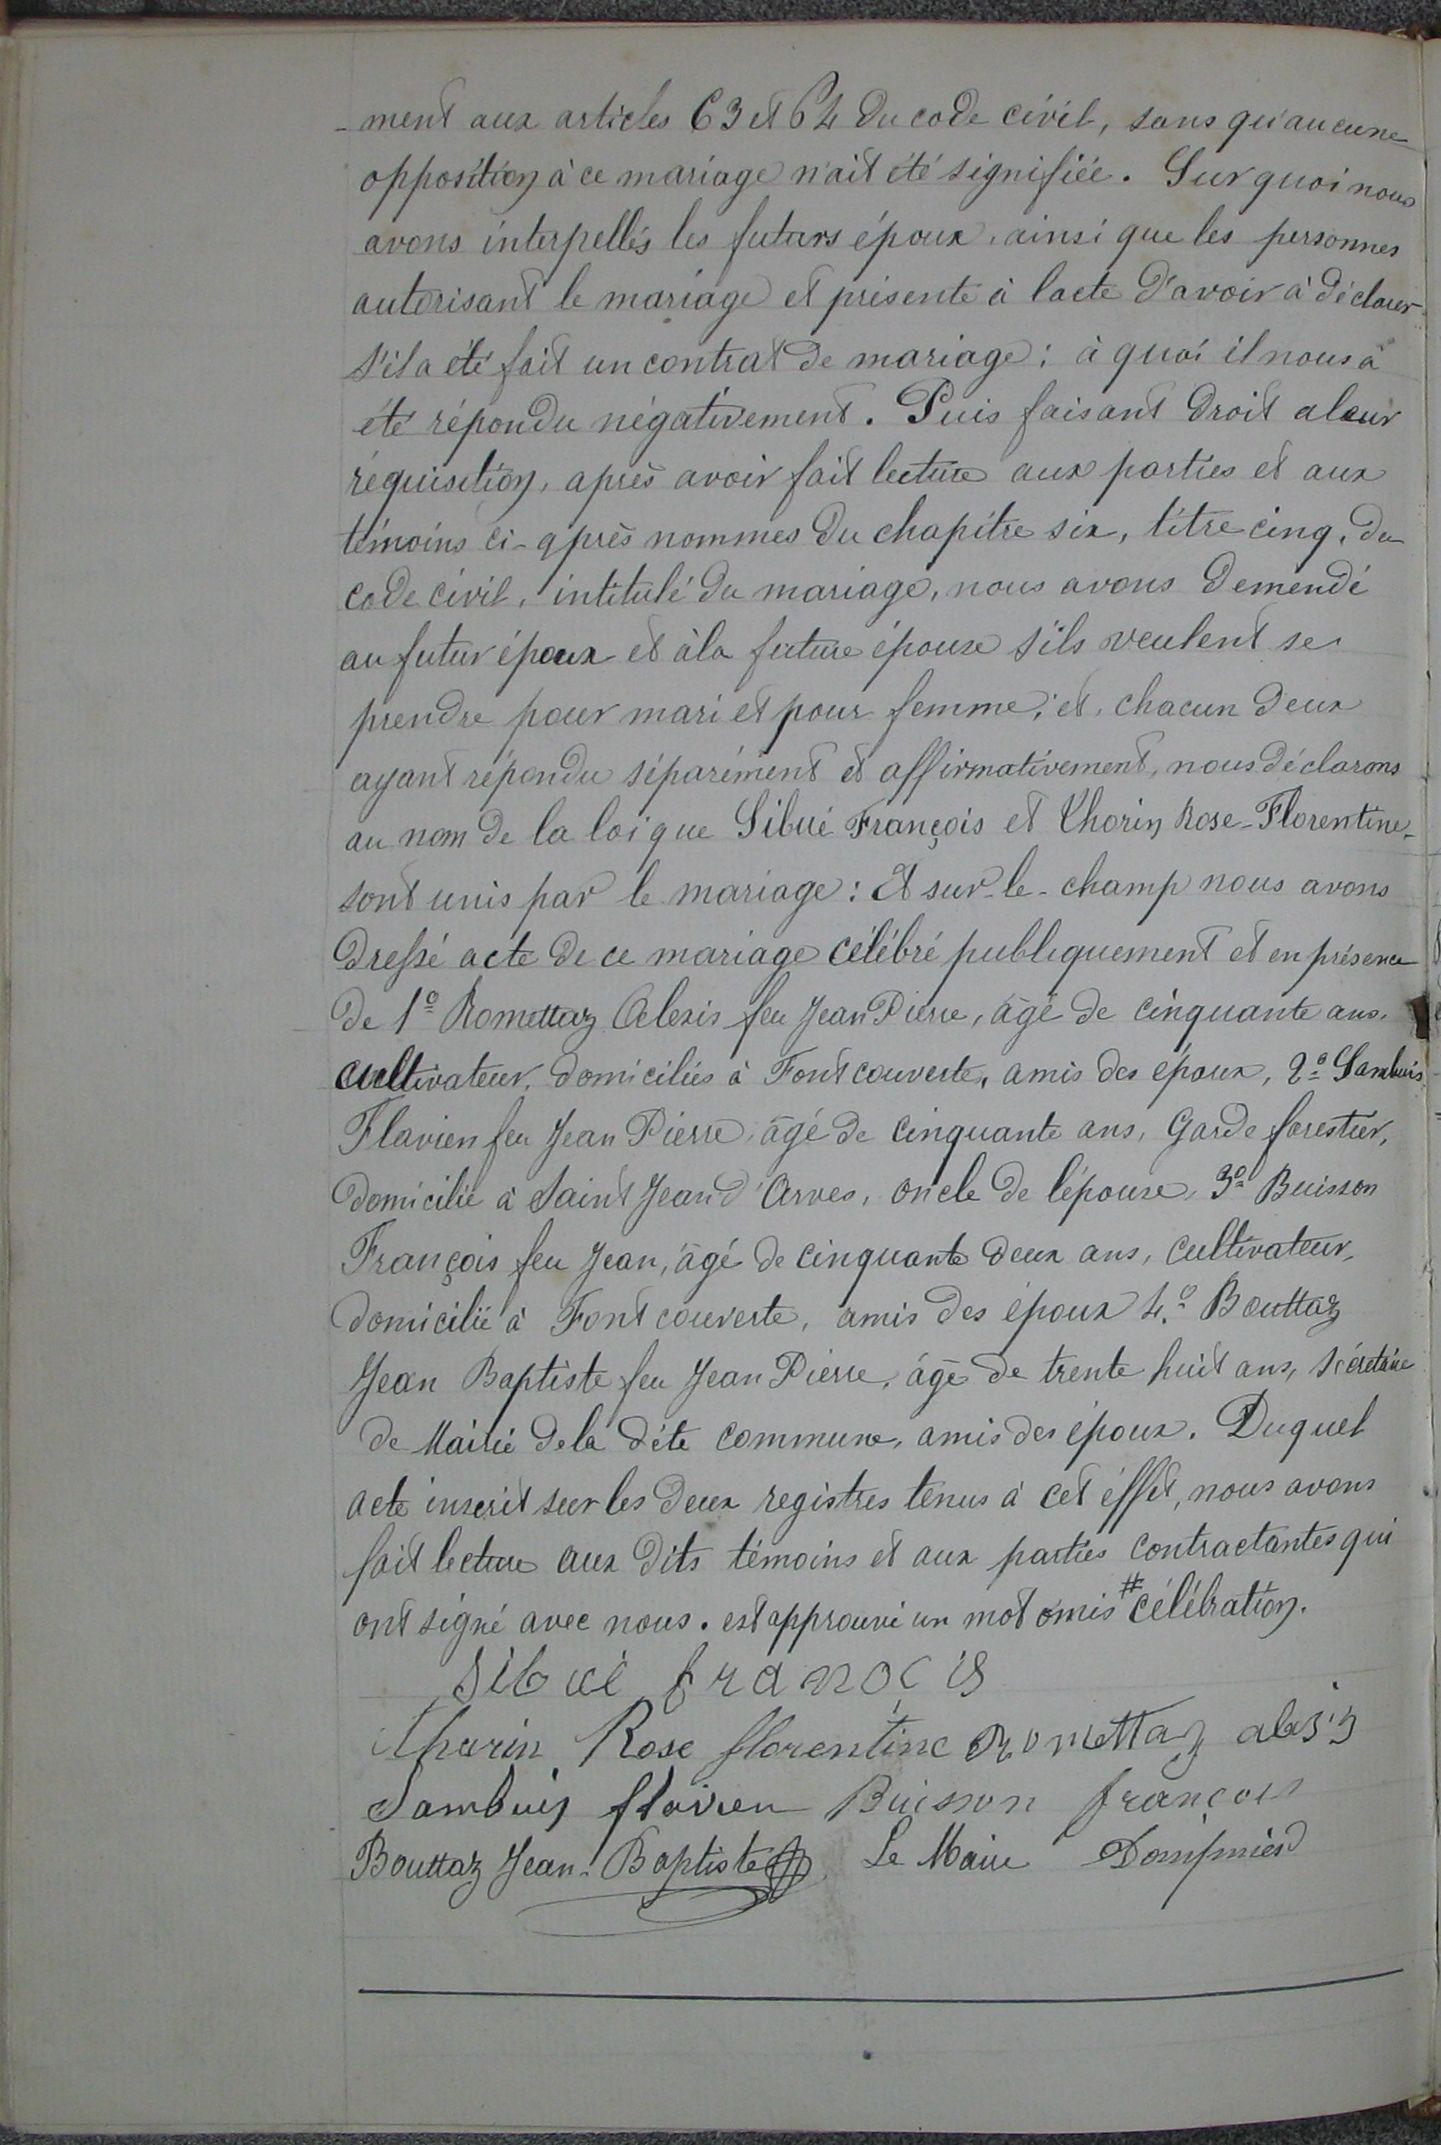 -ment aux articles 63 et 64 du code civil, sans qu'aucune
opposition à ce mariage n'ait été signifiée. Sur quoi nous
avons interpellés les futurs époux, ainsi que les personnes
autorisant le mariage et présente à lacte d'avoir à déclarer
s'il a été fait un contrat de mariage; à quoi il nous à
été répondu négativement. Puis faisant droit a leur
réquisition, après avoir fait lecture aux parties et aux
témoins ci-après nommes du chapitre six, titre cinq, du
code civil, intitulé du mariage, nous avons demendé
au futur époux et à la future épouse s'ils veulent se
prendre pour mari et pour femme; et, chacun deux
ayant répondu séparément et affirmativement, nous déclarons
au nom de la loi que Sibué François et Thorin Rose-Florentine
sont unis par le mariage: Et sur-le-champ nous avons
dressé acte de ce mariage célébré publiquement et en présence
de 1º Romettaz Alexis feu Jean Pierre, âgé de cinquante ans,
cultivateur, domiciliés à Fontcouverte, amis des époux, 2º Sambuis
Flavien feu Jean Pierre, âgé de cinquante ans, Garde forestier,
domicilié à Saint Jean d'Arves, oncle de l'épouse, 3º Buisson
François feu Jean, âgé de cinquante deux ans, cultivateur,
domicilié à Fontcouverte, amis des époux 4º Bouttaz
Jean Baptiste feu Jean Pierre, âgé de trente huit ans, sécretaire
de Mairie de la dite commune, amis des époux. Duquel
acte inscrit sur les deux registres tenus à cet éffet, nous avons
fait lecture aux dits témoins et aux parties contractantes qui
ont signé avec nous. est approuvé un mot omis # célébration.
Sibué franocis
Thorin Rose florentine Romettaz alexis
Sambuis flavien Buisson françois
Bouttaz Jean-Baptiste Le Maire Dompnier